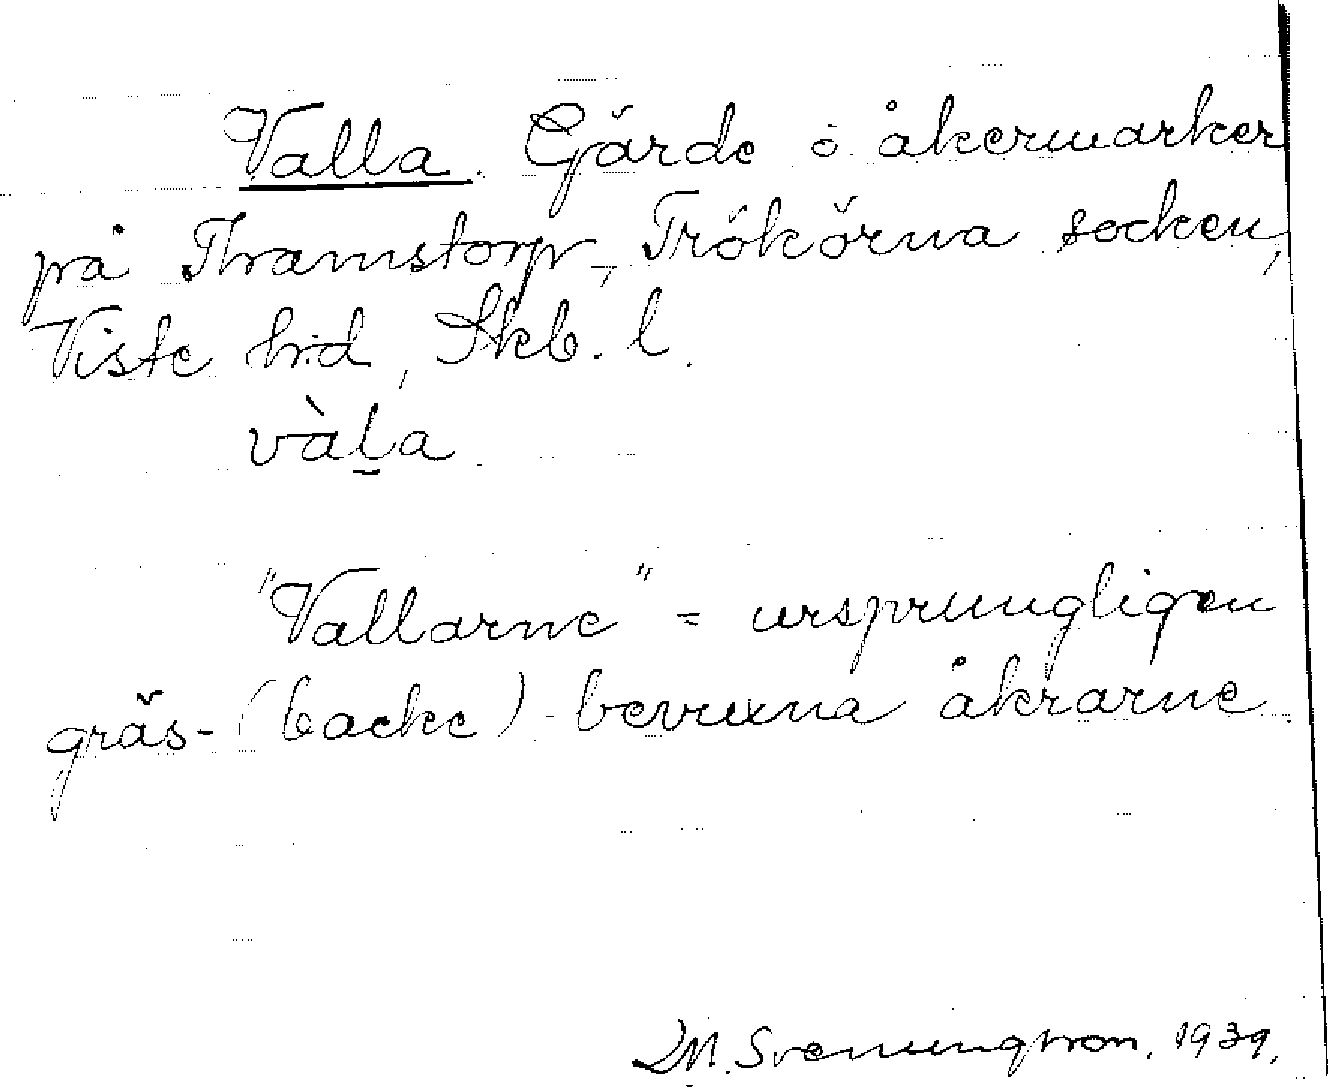 Valla. Gärde o åkermarker
på Thramstorp, Trökörna socken,
Viste hrd, Skb. l.
vàḷa
"Vallarne" = ursprungligen
gräs- (backe) bevuxna åkrarne.
M. Svenungsson. 1939.